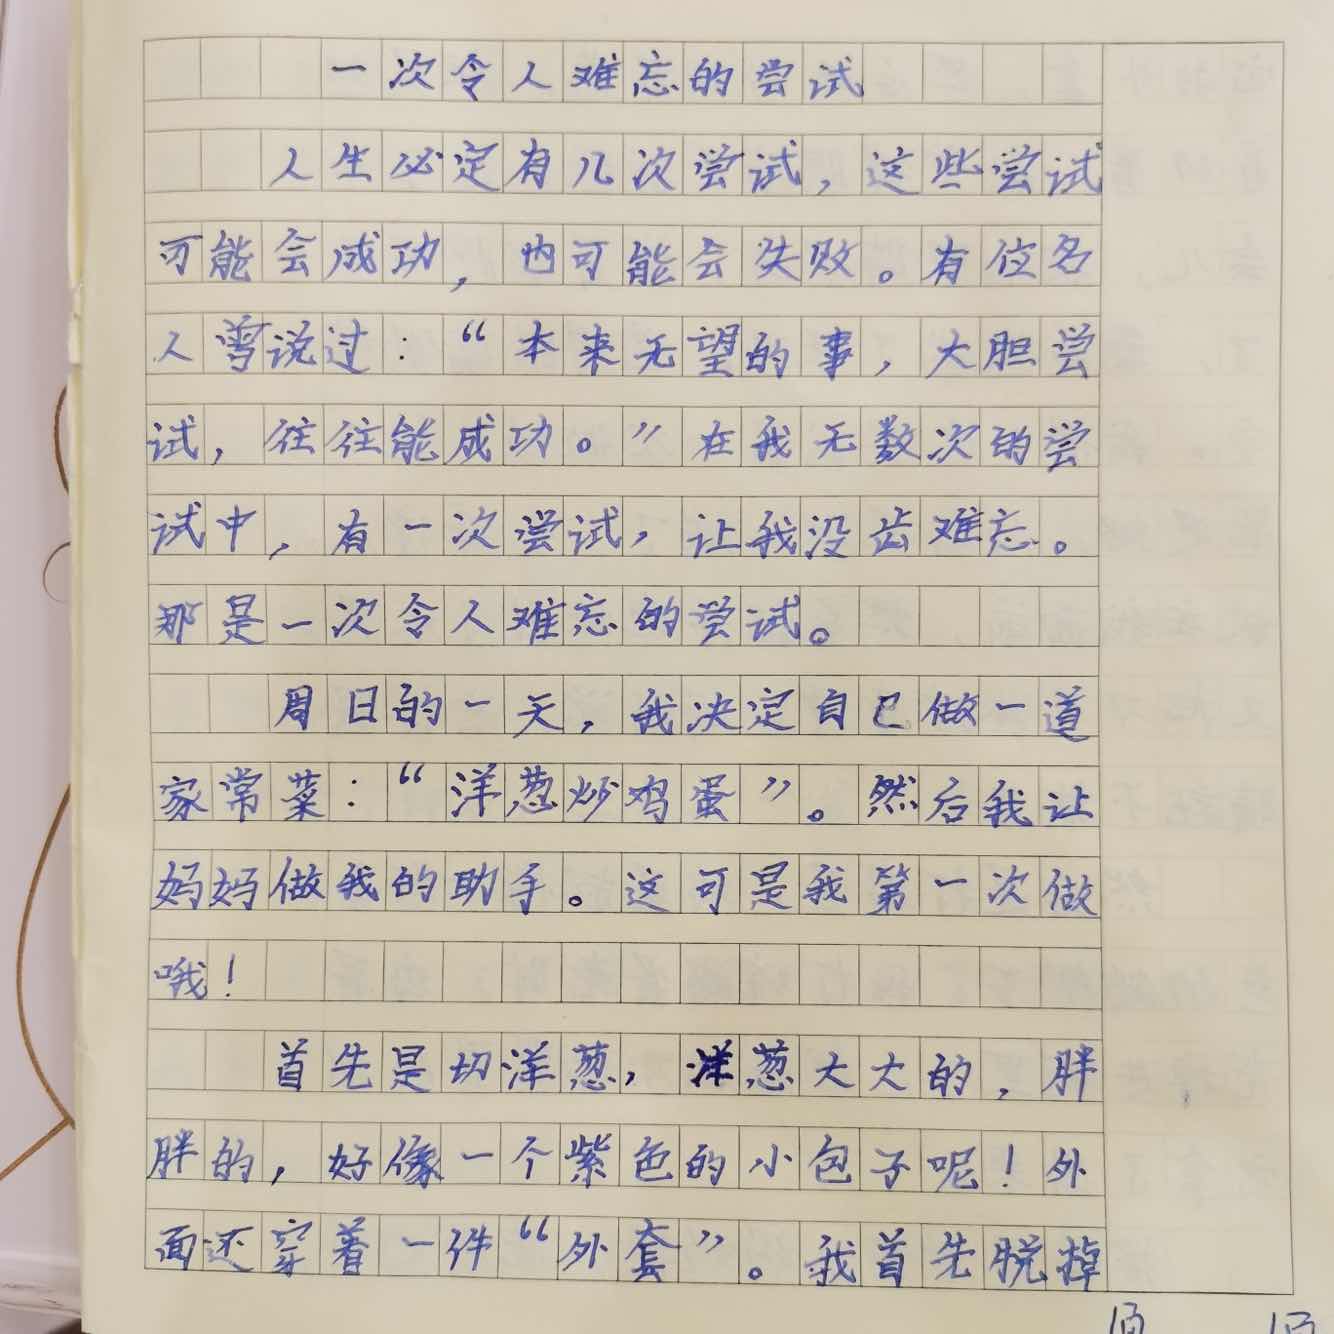 一次令人难忘的尝试
人生必定有几次尝试，这些尝试
可能会成功，也可能会失败。有位名
人曾说过：“本来无望的事，大胆尝
试，往往能成功。”在我无数次的尝
试中，有一次尝试，让我没齿难忘。
那是一次令人难忘的尝试。
周日的一天，我决定自己做一道
家常菜：“洋葱炒鸡蛋”。然后我让
妈妈做我的助手。这可是我第一次做
哦！
首先是切洋葱，洋葱大大的，胖
胖的，好像一个紫色的小包子呢！外
面还穿着一件“外套”。我首先脱掉